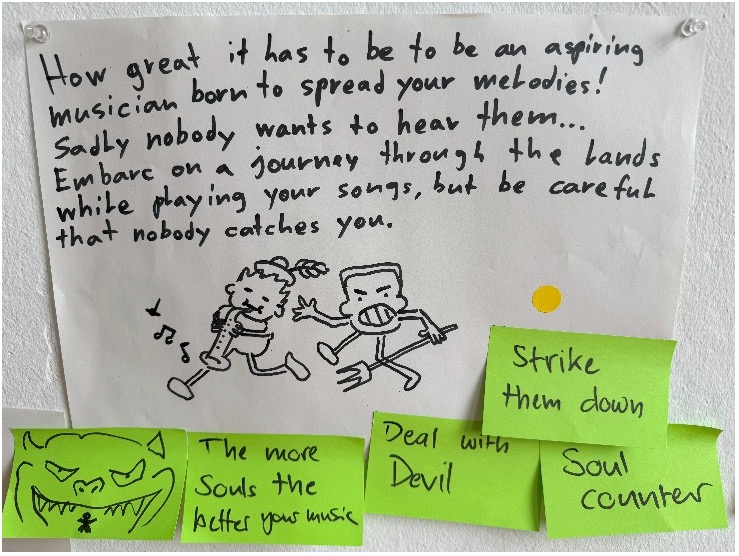 How great it has to be to be an aspiring
musician born to spread your melodies!
Sadly nobody wants to hear them...
Embarc on a journey through the lands
while playing your songs, but be careful
that nobody catches you.
Strike
them down
The more
Souls the
better your music
Deal with
Devil
Soul
counter